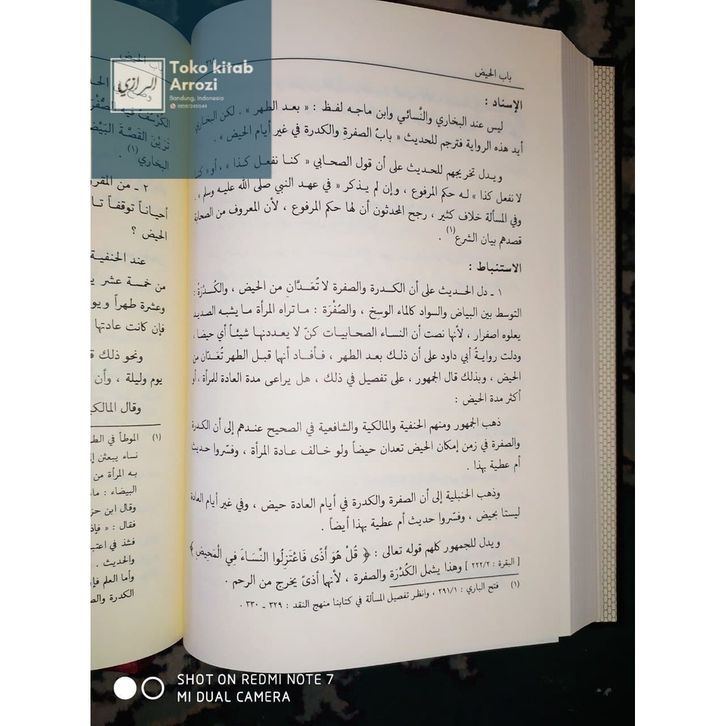 Toko kitab
Arrozi
Bandung, Indonesia
الرازي
باب الحيض
الإسناد :
ليس عند البخاري والنَّسائي وابن ماجه لفظ : « بعد الطهر » . لكن البخاري
أيد هذه الرواية فترجم للحديث « بابُ الصفرة والكدرة في غير أيام الحيض » .
ويدل تخريجهم للحديث على أن قول الصحابي « كنا نفعل كذا » ، أو « كنا
لا نفعل كذا » له حكم المرفوع ، وإن لم يذكر « في عهد النبي صلى الله عليه وسلم » .
وفي المسألة خلاف كثير ، رجح المحدثون أن لها حكم المرفوع ، لأن المعروف من الصحابة
قصدهم بيان الشرع (١) .
الاستنباط :
١ ـ دل الحديث على أن الكدرة والصفرة لا تُعَدَّانِ من الحيض ، والكُدْرَةُ :
التوسط بين البياض والسواد كالماء الوسخ ، والصُّفْرَة : ما تراه المرأة ما يشبه الصديد
يعلوه اصفرار ، لأنها نصت أن النساء الصحابيات كنّ لا يعددنها شيئاً أي حيضا ،
ودلت روايةُ أبي داود على أن ذلك بعد الطهر ، فأفاد أنها قبل الطهر تُعَدّان من
الحيض ، وبذلك قال الجمهور ، على تفصيل في ذلك ، هل يراعى مدة العادة للمرأة ، أو
أكثر مدة الحيض :
ذهب الجمهور ومنهم الحنفية والمالكية والشافعية في الصحيح عندهم إلى أن الكدرة
والصفرة في زمن إمكان الحيض تعدان حيضاً ولو خالف عادة المرأة ، وفسّروا حديث
أم عطية بهذا .
وذهب الحنبلية إلى أن الصفرة والكدرة في أيام العادة حيض ، وفي غير أيام العادة
ليستا بحيض ، وفسّروا حديث أم عطية بهذا أيضاً .
ويدل للجمهور كلهم قوله تعالى : ﴿ قُلْ هُوَ أَذًى فَاعْتَزِلُوا النِّسَاءَ فِي الْمَحِيضِ ﴾
[ البقرة : ٢٢٢/٢ ] وهذا يشمل الكُدْرَة والصفرة ، لأنها أذىً يخرج من الرحم .
(١) فتح الباري : ٢٩١/١ ، وانظر تفصيل المسألة في كتابنا منهج النقد : ٣٢٩ ـ ٣٣٠ .
باب الحيض
البخاري (١) .
٢ ـ من المقرر
أحياناً توقفاً
الحيض ؟
عند الحنفية
من خمسة عشر
وعشرة طهراً ويو
فإن كانت عادتها
ونحو ذلك
يوم وليلة ، وأن
وقال المالك
(١) الموطأ في الط
نساء يبعثن إ
به المرأة من
البيضاء : ما
وقال ابن حز
فقال : « فإذ
فشذ في اعتب
على الحديث .
وأما العلم فإ
الكدرة والص
SHOT ON REDMI NOTE 7
MI DUAL CAMERA